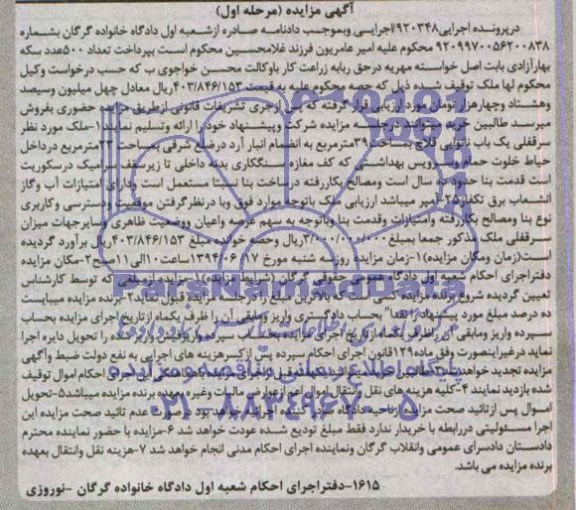 آگهی مزایده (مرحله اول)
درپرونده اجرایی۹۲۰۳۴۸/اجرایی وبموجب دادنامه صادره ازشعبه اول دادگاه خانواده گرگان بشماره
۹۲۰۹۹۷۰۰۵۶۲۰۰۸۳۸ محکوم علیه امیر عامریون فرزند غلامحسین محکوم است بپرداخت تعداد ۵۰۰عدد سکه
بهارآزادی بابت اصل خواسته مهریه درحق ربابه زراعت کار باوکالت محسن خواجوی ب که حسب درخواست وکیل
محکوم لها ملک توقیف شده ذیل که حصه محکوم علیه به قیمت ۴۰۳/۸۴۶/۱۵۳ریال معادل چهل میلیون وسیصد
وهشتاد وچهارهزار تومان مورد ارزیابی قرار گرفته که پس ازجری تشریفات قانونی ازطریق مزایده حضوری بفروش
میرسد طالبین خرید میتوانند درجلسه مزایده شرکت وپیشنهاد خود را ارائه وتسلیم نمایند۱-ملک مورد نظر
سرقفلی یک باب نانوایی قلاچ بمساحت۳۹مترمربع به انضمام انبار آرد درضلع شرقی بمساحت ۲۳مترمربع درداخل
حیاط خلوت حمام وسرویس بهداشتی که کف مغازه سنگکاری بدنه داخلی تا زیرسقف سرامیک درسکوریت
است قدمت بنا حدود ده سال است ومصالح بکاررفته درساخت بنا نسبتا مستعمل است ودارای امتیازات آب وگاز
انشعاب برق تکفاز۲۵آمپر میباشد ارزیابی ملک باتوجه موارد فوق وبا درنظرگرفتن موقعیت ودسترسی وکاربری
نوع بنا ومصالح بکاررفته وامتیازات وقدمت بنا وباتوجه به سهم عرصه واعیان ووضعیت ظاهری وسایرجهات میزان
سرقفلی ملک مذکور جمعا بمبلغ ۳/۰۰۰/۰۰۰/۰۰۰ریال وحصه خوانده مبلغ ۴۰۳/۸۴۶/۱۵۳ریال برآورد گردیده
است(زمان ومکان مزایده)۱-زمان مزایده روزسه شنبه مورخ ۱۳۹۴/۰۶/۱۷ساعت۱۰الی۱۱صبح۲-مکان مزایده
دفتراجرای احکام شعبه اول دادگاه عمومی حقوقی گرگان (شرایط مزایده)۱-مزایده ازمبلغی که توسط کارشناس
تعیین گردیده شروع برنده مزایده کسی است که بالاترین مبلغ را درجلسه مزایده قبول نماید۲-برنده مزایده میبایست
ده درصد مبلغ مورد پیشنهاد را نقدا" بحساب دادگستری واریز ومابقی آن را ظرف یکماه ازتاریخ اجرای مزایده بحساب
سپرده واریز ومابقی آن راظرف یکماه ازتاریخ اجرای مزایده بحساب سپرده واریزفیش واریز شده را تحویل دایره اجرا
نماید درغیراینصورت وفق ماده۱۲۹قانون اجرای احکام سپرده پس ازکسرهزینه های اجرایی به نفع دولت ضبط وآگهی
مزایده تجدید خواهد شد۳
شده بازدید نمایند ۴-کلیه هزینه های نقل وانتقال اموال اعم ازعوارض مالیات وغیره بعهده برنده مزایده میباشد۵-تحویل
اموال پس ازتائید صحت مزایده ازناحیه دادگاه صادر کننده اجرائیه خواهد بود ودرصورت عدم تائید صحت مزایده این
اجرا مسئولیتی دررابطه با خریدار ندارد فقط مبلغ تودیع شده عودت خواهد شد ۶-مزایده با حضور نماینده محترم
دادستان دادسرای عمومی وانقلاب گرگان ونماینده اجرای احکام مدنی انجام خواهد شد ۷-هزینه نقل وانتقال بعهده
برنده مزایده می باشد.
۱۶۱۵-دفتراجرای احکام شعبه اول دادگاه خانواده گرگان -نوروزی
ParsNamadData
۰۲۱-۸۸۳۴۹۶۷۰-۵